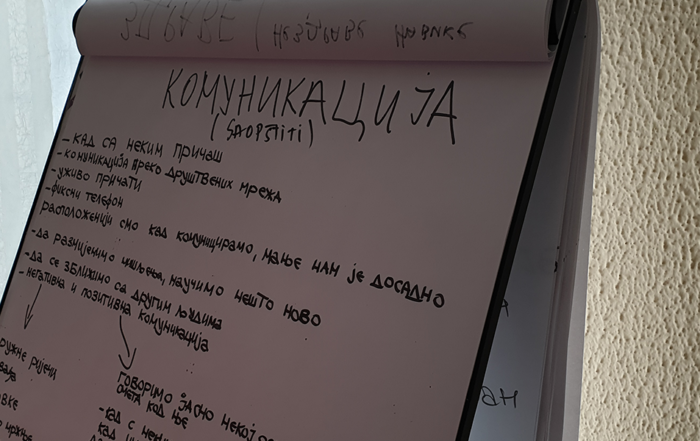 ЗДРАВЕ / НЕЗДРАВЕ НАВИКЕ
КОМУНИКАЦИЈА
(SAOPŠTITI)
- КАД СА НЕКИМ ПРИЧАШ
- КОМУНИКАЦИЈА ПРЕКО ДРУШТВЕНИХ МРЕЖА
- УЖИВО ПРИЧАТИ
- ФИКСНИ ТЕЛЕФОН
РАСПОЛОЖЕНИЈИ СМО КАД КОМУНИЦИРАМО, МАЊЕ НАМ ЈЕ ДОСАДНО
- ДА РАЗМИЈЕНИМО МИШЉЕЊА, НАУЧИМО НЕШТО НОВО
- ДА СЕ ЗБЛИЖИМО СА ДРУГИМ ЉУДИМА
- НЕГАТИВНА И ПОЗИТИВНА КОМУНИКАЦИЈА
РУЖНЕ РИЈЕЧИ
ГОВОРИМО ЈАСНО
КОД ЊЕ
- КАД С
КАД